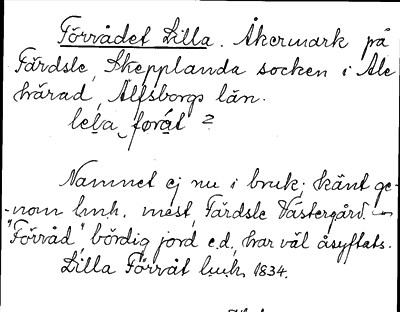 Förrådet Lilla. Åkermark på
Färdsle, Skepplanda socken i Ale
härad, Älfsborgs län.
lela föråt ?
Namnet ej nu i bruk; känt ge-
-nom lmh. mest, Färdsle Västergård. –
"Förråd", bördig jord e.d., har väl åsyftats.
Lilla Förråt lmh, 1834.